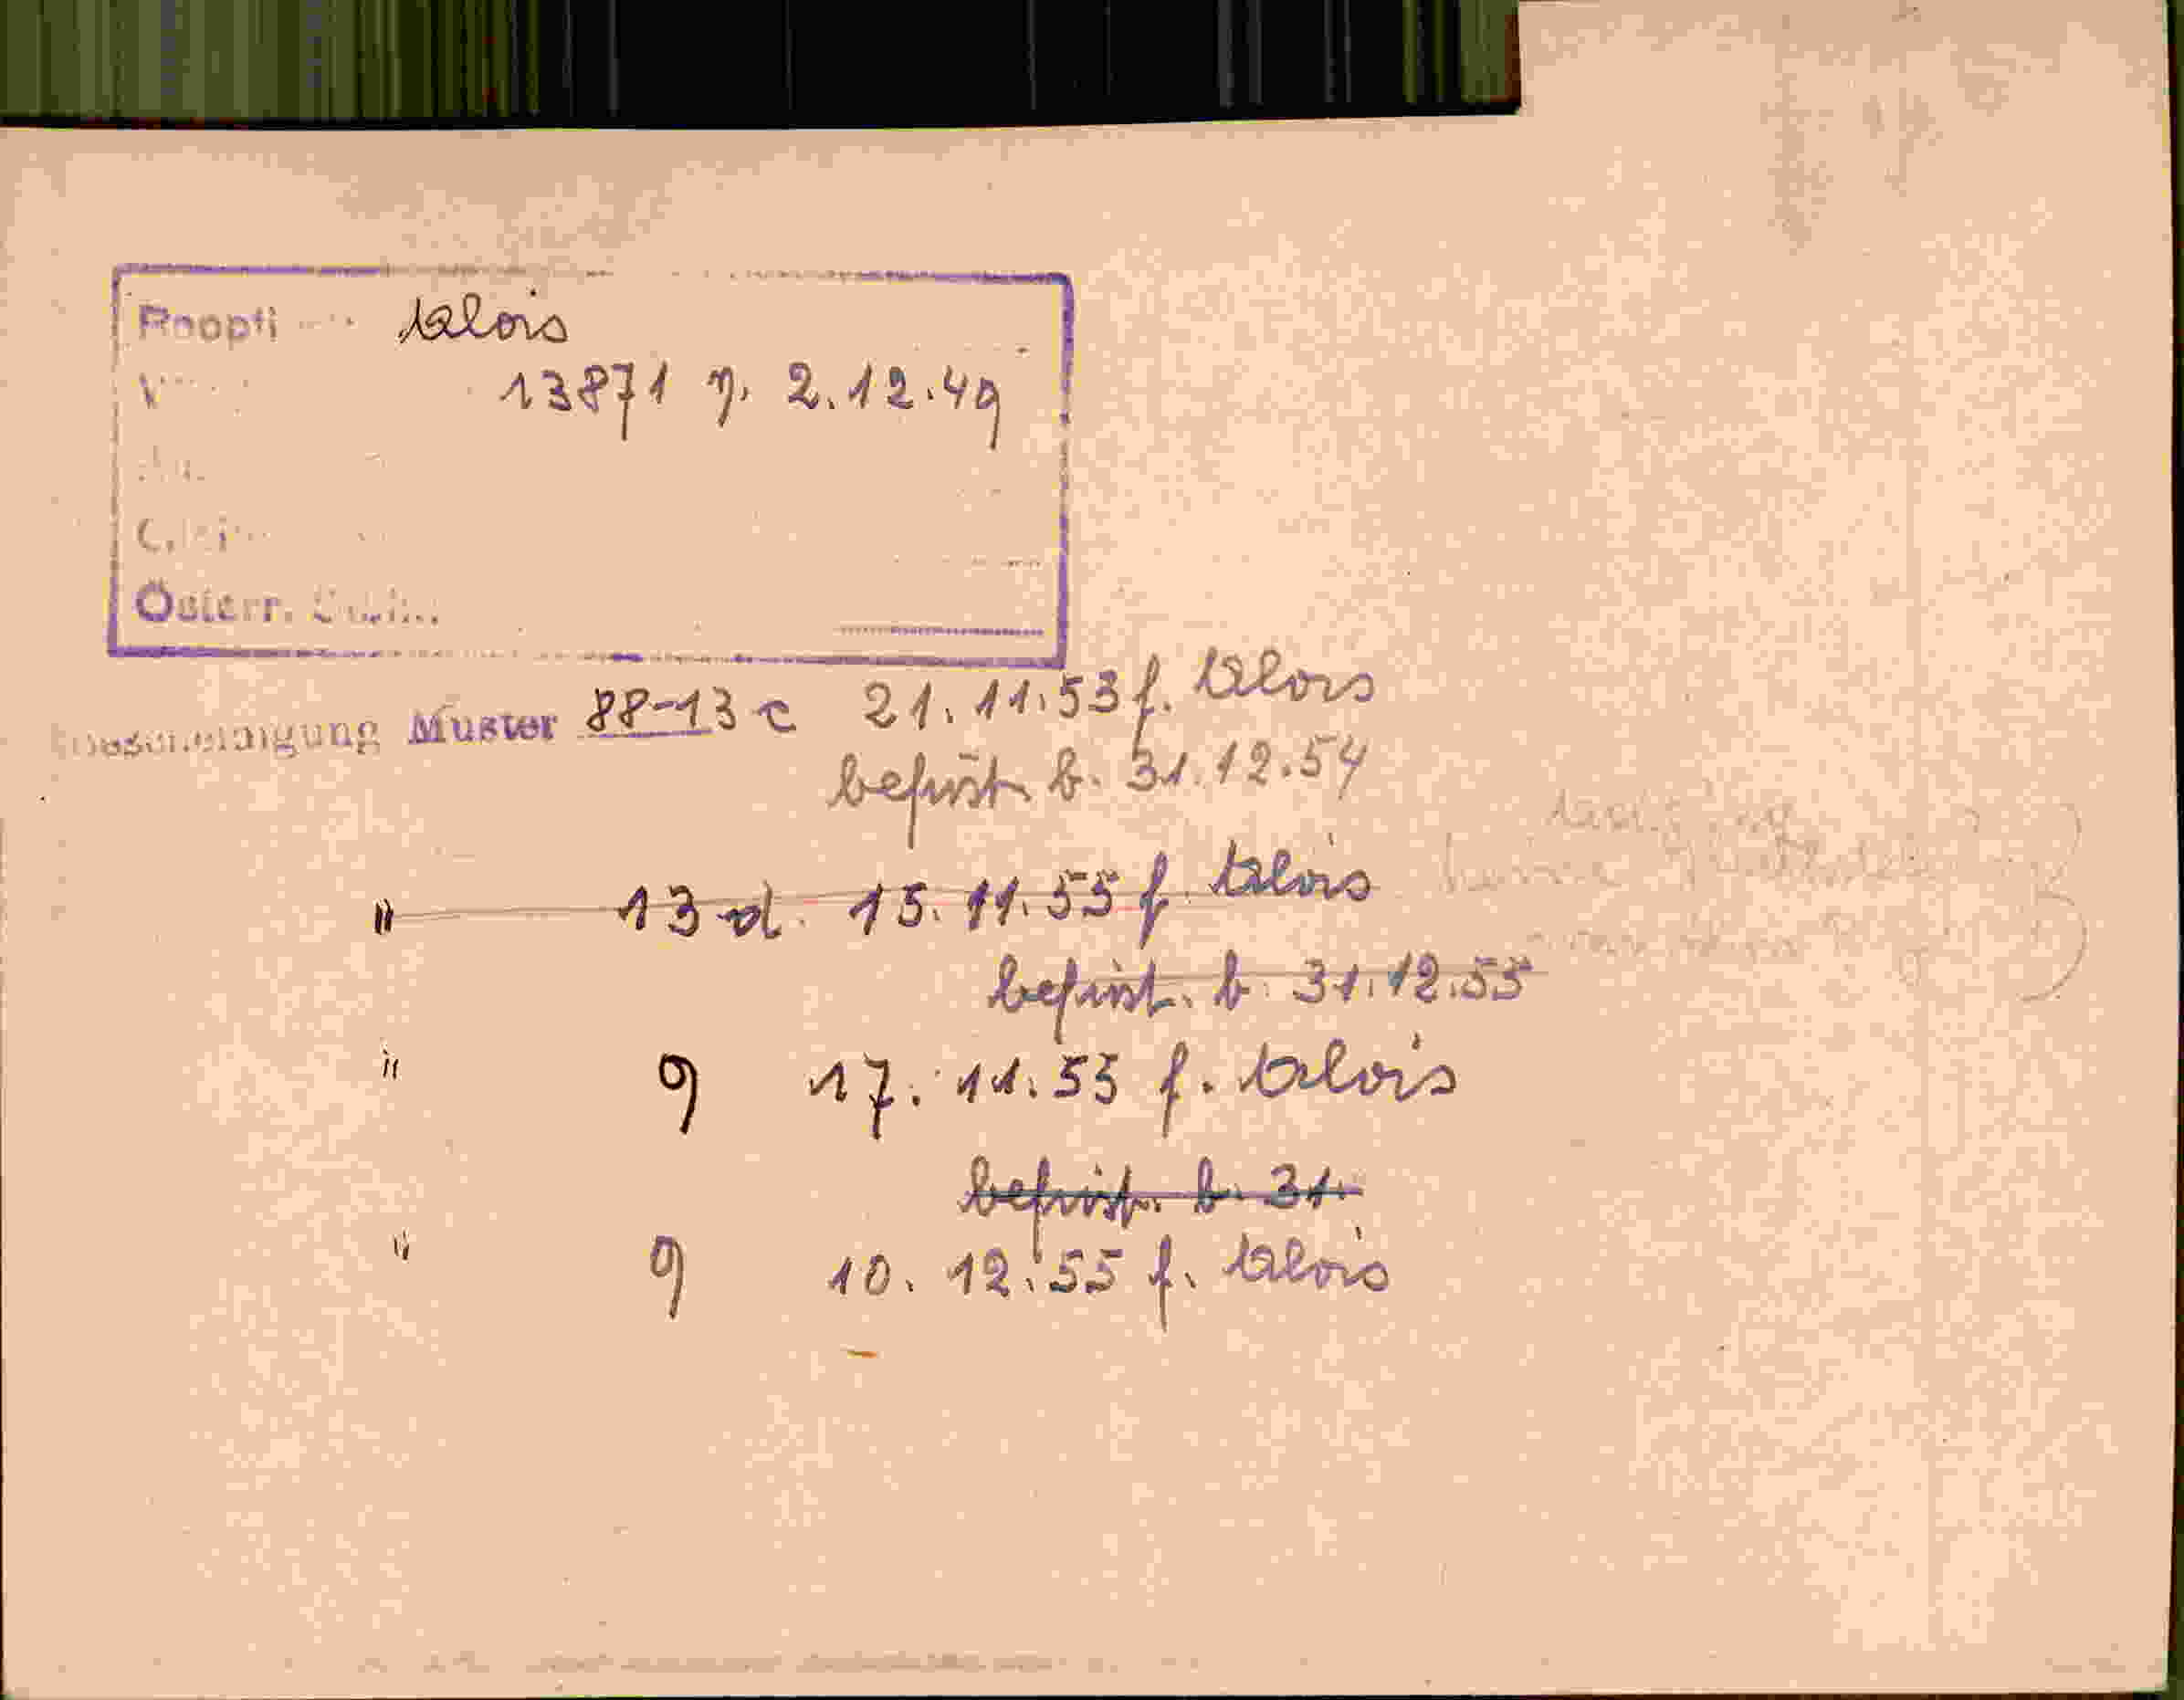 Alois
13871 v. 2.12.49
Österr.
Bescheinigung Muster 88-13 c 21.11.53 f. Alois
befrist. b. 31.12.54
" 13 d. 15.11.55 f. Alois
befrist. b. 31.12.55
" 9 17.11.55 f. Alois
befrist. b. 31.
" 9 10.12.55 f. Alois